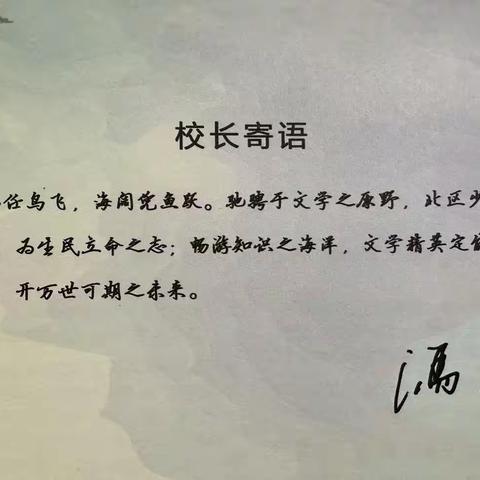 校长寄语
任鸟飞，海阔凭鱼跃。驰骋于文学之原野，北区少
为生民立命之志；畅游知识之海洋，文学精英定
开万世可期之未来。
冯